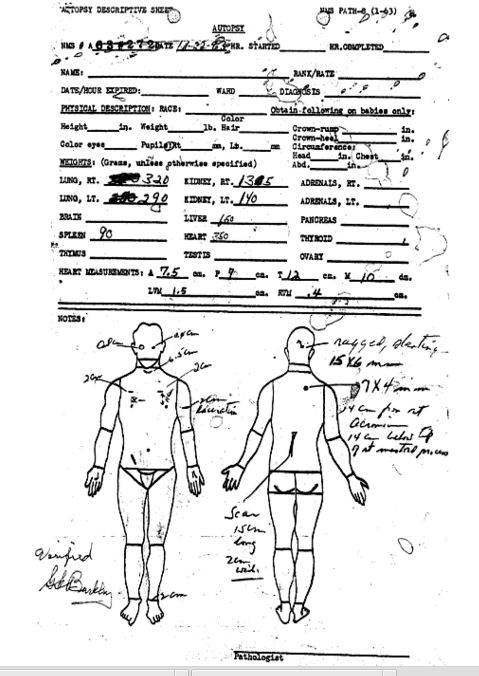 AUTOPSY DESCRIPTIVE SHEET NMS PATH-8 (1-63)
AUTOPSY
NMS # A 63 # 272 DATE 11-22-63 HR. STARTED HR. COMPLETED
NAME: RANK/RATE
DATE/HOUR EXPIRED: WARD DIAGNOSIS
PHYSICAL DESCRIPTION: RACE: Obtain following on babies only:
Color
Height in. Weight lb. Hair Crown-rump in.
Crown-heel in.
Color eyes Pupil: Rt mm, Lt. mm Circumference:
Head in. Chest in.
Abd. in.
WEIGHTS: (Grams, unless otherwise specified)
LUNG, RT. 320 KIDNEY, RT. ADRENALS, RT.
LUNG, LT. 290 KIDNEY, LT. 140 ADRENALS, LT.
BRAIN LIVER PANCREAS
SPLEEN 90 HEART 350 THYROID
THYMUS TESTIS OVARY
HEART MEASUREMENTS: A 7.5 cm. P 7 cm. T 12 cm. M 10 cm.
LVM 1.5 cm. RVM .4 cm.
NOTES:
ragged, slanting
15X6 mm
6.5cm
2cm
2cm
7X4 mm
14 cm from rt
acromion
14 cm below tip
of rt mastoid process
Scar
15cm
long
2cm
Verified
GG Burkley
2cm
Pathologist